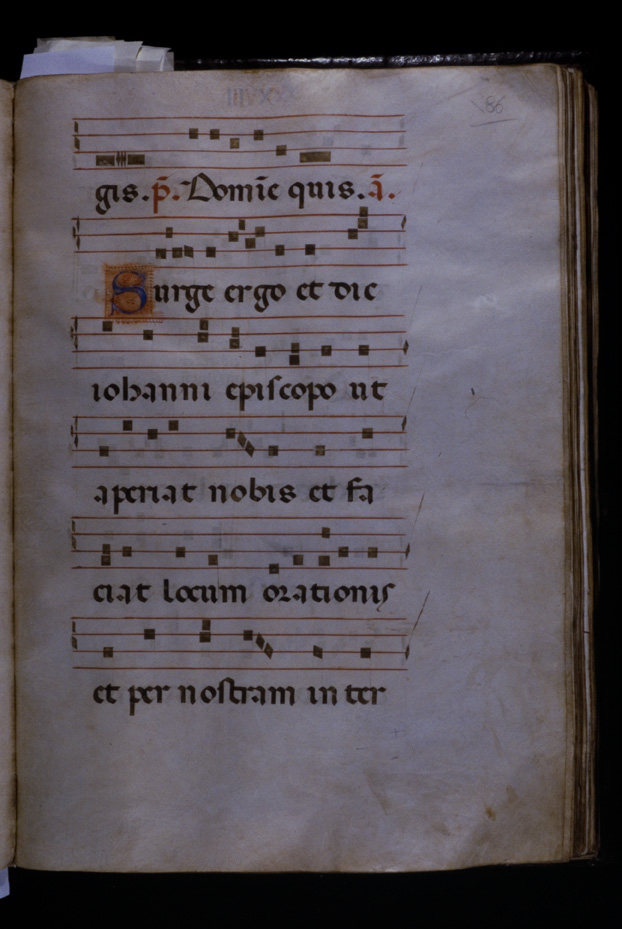 86
gis. p̄. Domīe quis. ā.
Surge ergo et dic
iohanni episcopo ut
aperiat nobis et fa
ciat locum orationis
et per nostram in ter